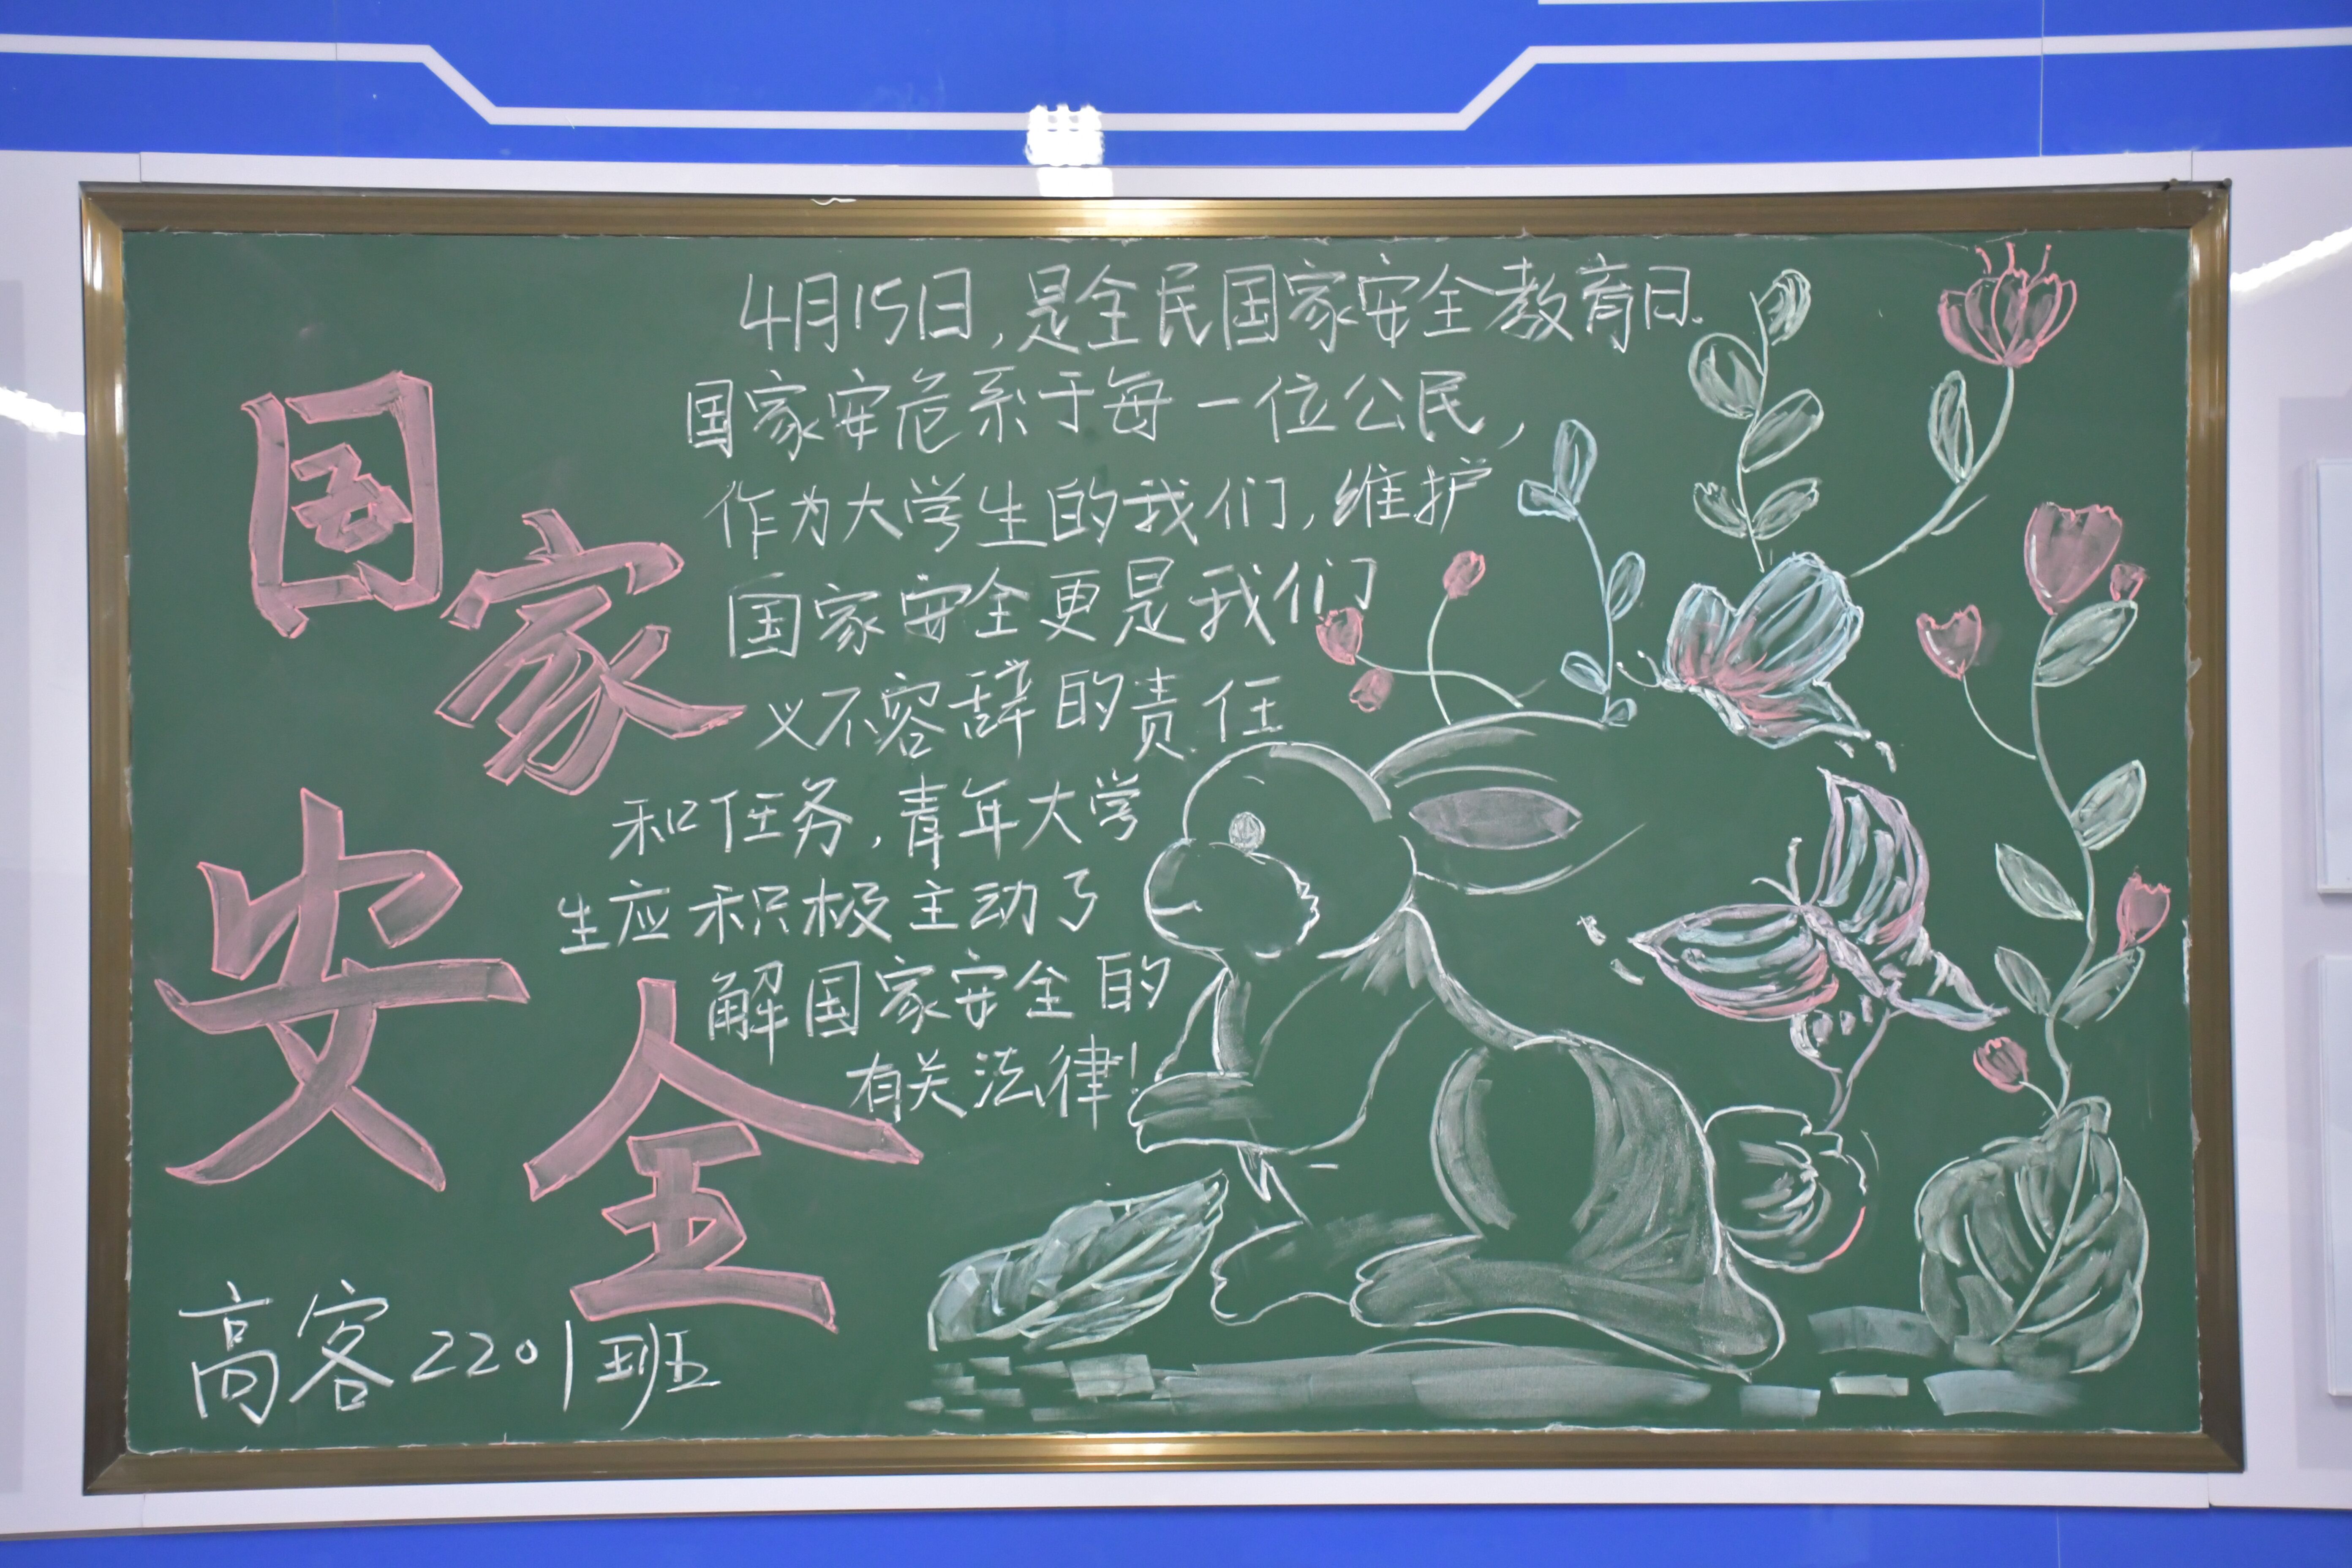 国家
安全
4月15日,是全民国家安全教育日.
国家安危系于每一位公民,
作为大学生的我们,维护
国家安全更是我们
义不容辞的责任
和任务,青年大学
生应积极主动了
解国家安全的
有关法律!
高客2201班